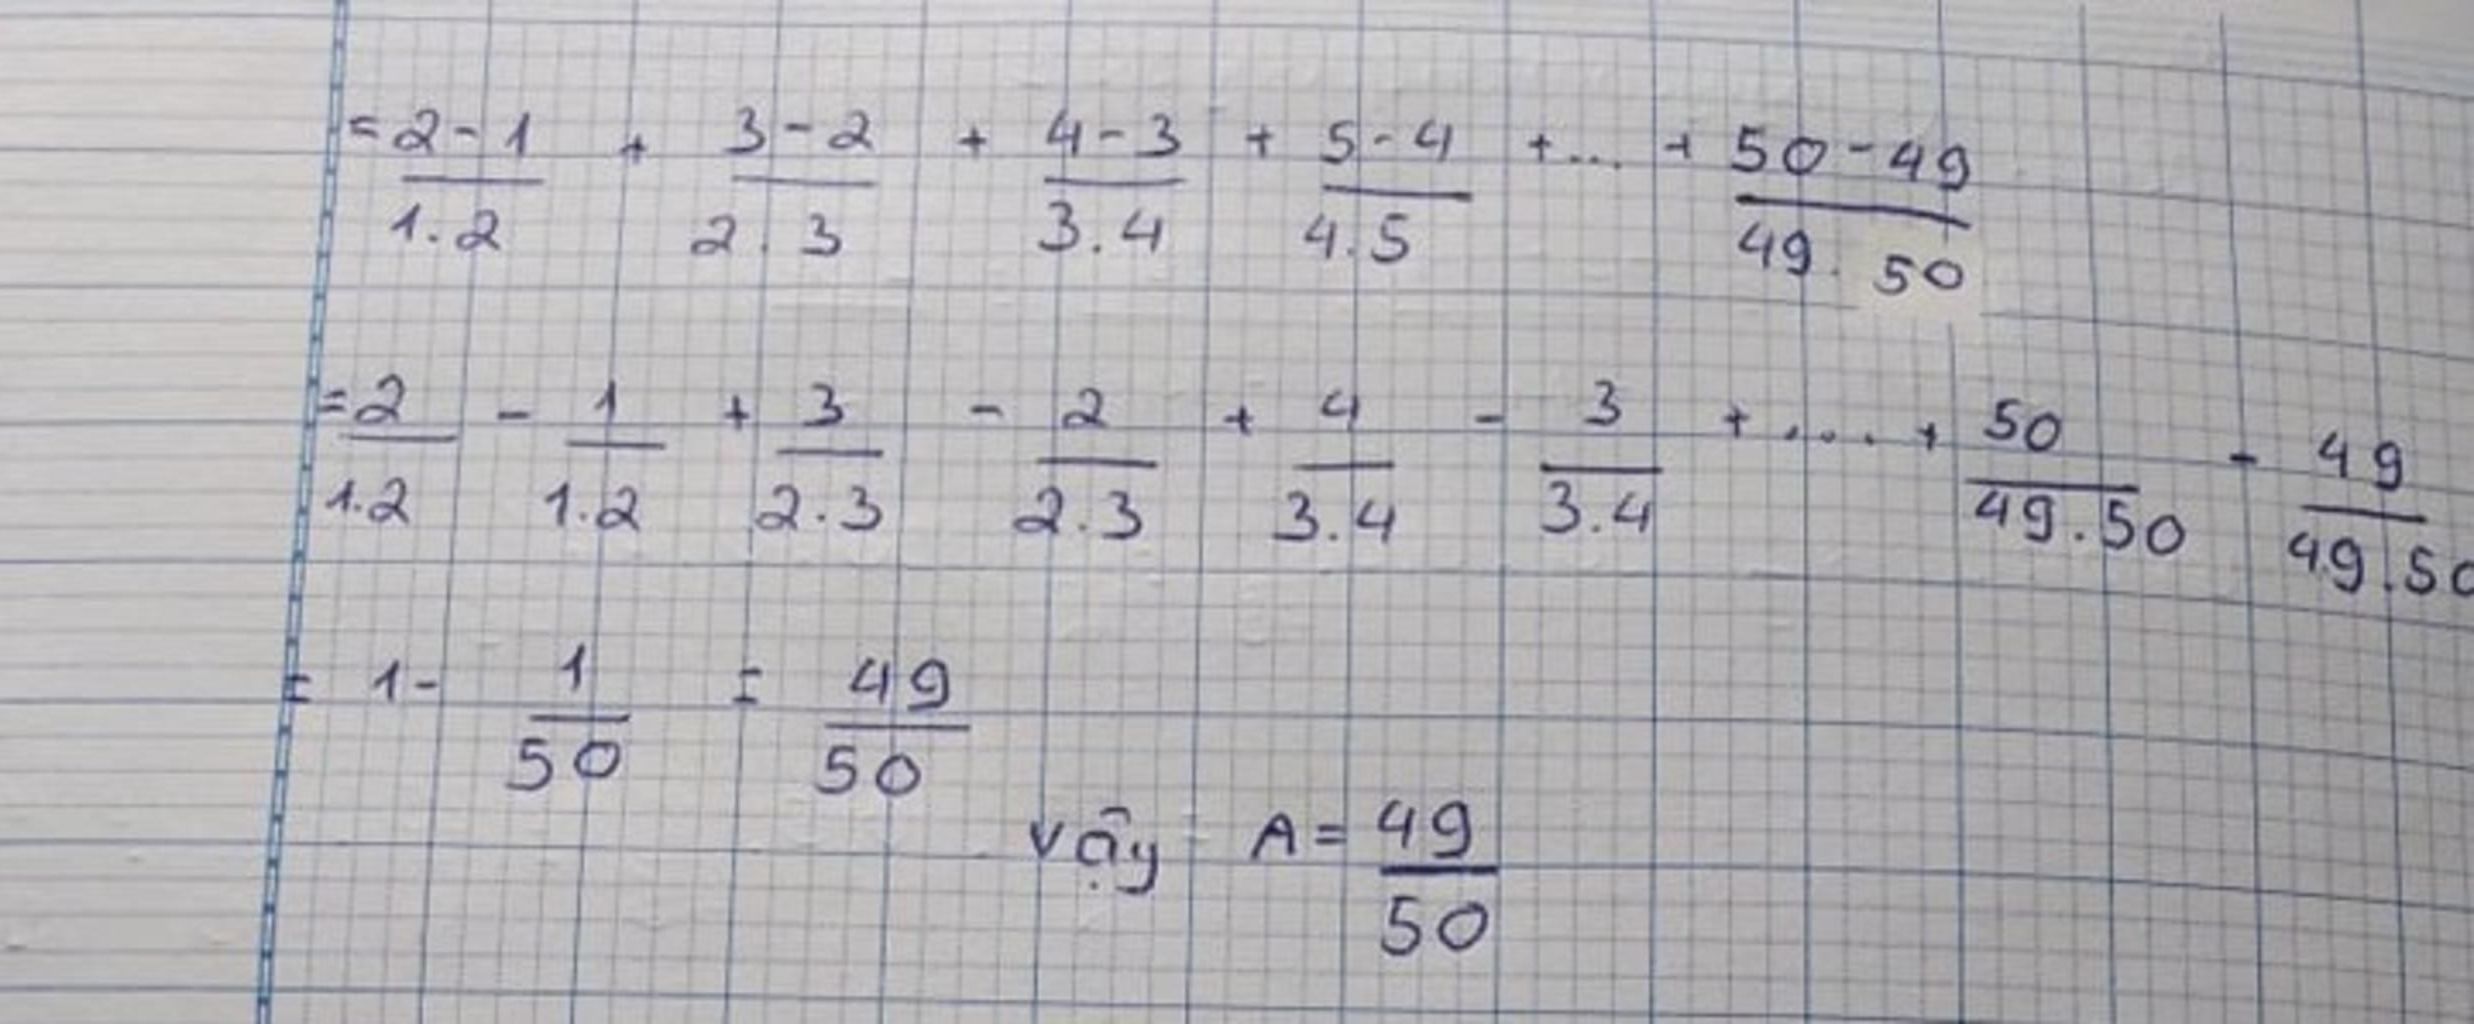 = (2-1)/(1.2) + (3-2)/(2.3) + (4-3)/(3.4) + (5-4)/(4.5) +... + (50-49)/(49.50)
= 2/(1.2) - 1/(1.2) + 3/(2.3) - 2/(2.3) + 4/(3.4) - 3/(3.4) +....+ 50/(49.50) - 49/(49.50)
= 1- 1/50 = 49/50
vậy A = 49/50